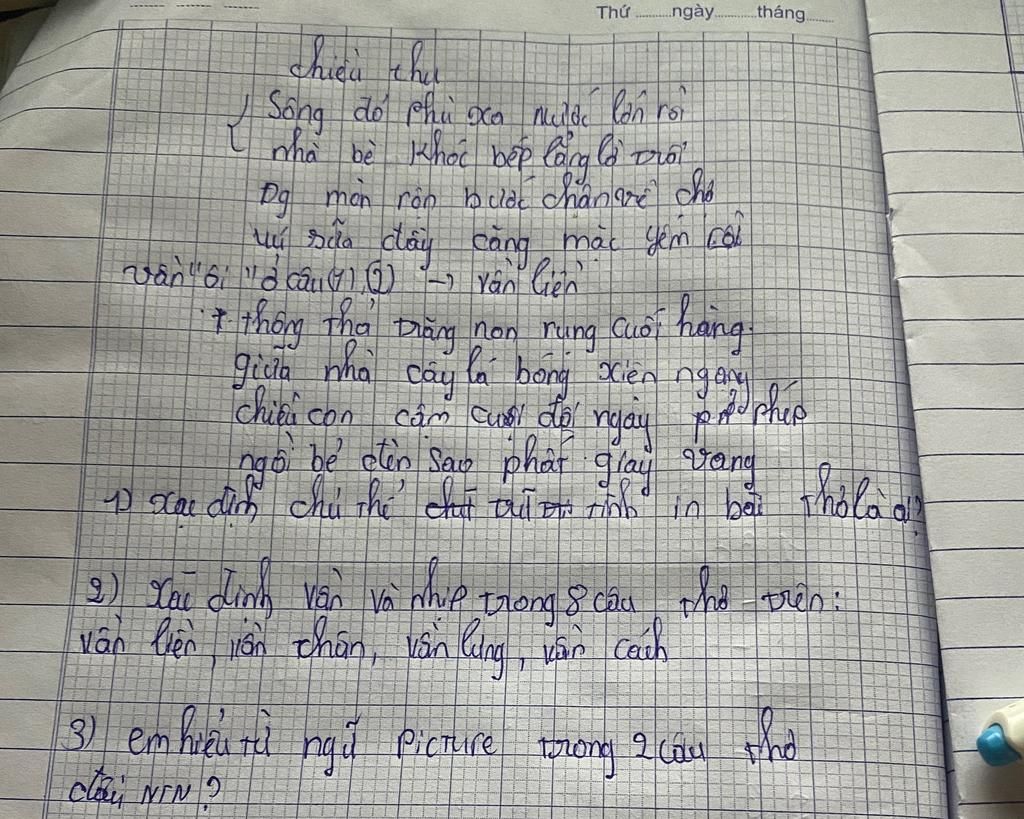 Thứ ngày tháng
Chiều thu
Sông đỏ phù xa nước lớn rồi
nhà bè khói bếp lẳng lơ trôi
Đg mòn rộn bước chân về chợ
vú sữa đầy căng mặc yếm
vần "ôi" ở câu (1), (2) → vần liền
+ thông thả trăng non rụng cuối hàng
giữa nhà cây lá bóng xiên ngang
chiều con cầm cưới đôi ngày phép
ngõ bé đèn sao phất giấy vang
1) xác định chủ thể trữ tình in bài thơ là ai?
2) Xác định vần và nhịp trong 8 câu thơ trên:
vần liền, vần chân, vần lưng, vần cách
3) em hiểu từ ngữ picture trong 2 câu thơ
đầu NTN?